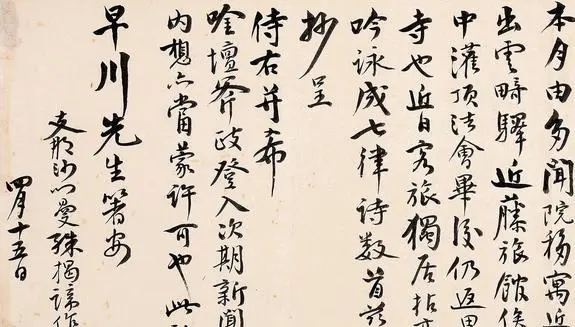 本月由多聞院移寓近
出雲畸驛近藤旅館俟
中灌頂法會畢後仍返
寺也近日客旅獨居拈
吟詠成七律詩數首茲
抄呈
侍右并希
唫壇斧政登入次期新聞
内想亦當蒙許可也此
早川先生箸安
支那沙門曼殊揭諦作
四月十五日